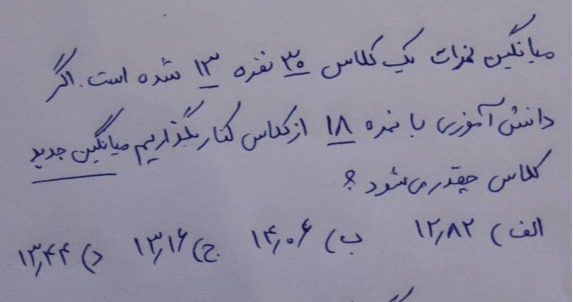 میانگین نمرات یک کلاس ۳۰ نفره ۱۳ شده است. اگر
دانش آموزی با نمره ۱۸ از کلاس کنار بگذاریم میانگین جدید
کلاس چقدر می شود ؟
الف) ۱۲٫۸۲ ب) ۱۴٫۰۶ ج) ۱۳٫۱۶ د) ۱۳٫۴۴